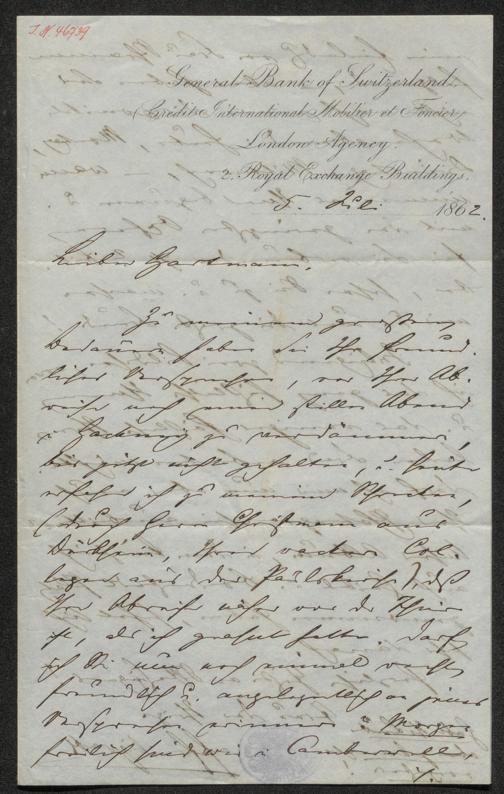 I. N. 46739
General Bank of Switzerland.
(Crédit International Mobilier et Foncier)
London Agency.
2. Royal Exchange Buildings.
5. Juli 1862.
Lieber Hartmann,
Zu meinem großen
Bedauern haben Sie Ihr freund-
liches Versprechen, vor Ihrer Ab-
reise noch einen stillen Abend
i. Hackney zu verdämmern,
bis jetzt nicht gehalten, u. heute
erfahre ich zu meinem Schrecken,
(durch Herrn Christmann aus
Dürkheim, Ihren wackern Col-
legen aus der Paulskirche), daß
Ihre Abreise näher vor der Thür
ist, als ich geahnt hatte. Darf
ich Sie nun noch einmal recht
freundlich u. angelegentlich an jenes
Versprechen erinnern? Morgen
freilich sind wir i. Camberwell,